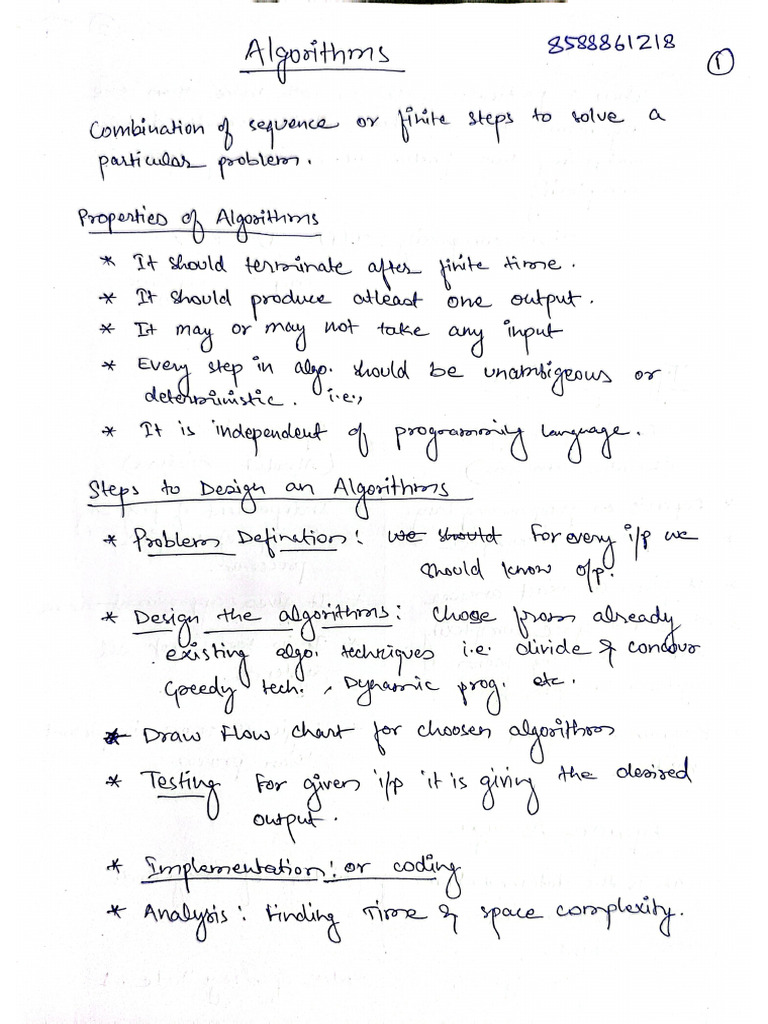 Algorithms
8588861218
1
Combination of sequence or finite steps to solve a
particular problem.
Properties of Algorithms
* It should terminate after finite time.
* It should produce atleast one output.
* It may or may not take any input
* Every step in algo. should be unambigeous or
deterministic. i.e.,
* It is independent of programming language.
Steps to Design an Algorithms
* Problem Defination: we should For every i/p we
should know o/p.
* Design the algorithms: choose from already
existing algo. techniques i.e. divide & concour
Greedy tech., Dynamic prog. etc.
* Draw Flow chart for choosen algorithm
* Testing For given i/p it is giving the desired
output.
* Implementation: or coding
* Analysis: Finding Time & space complexity.